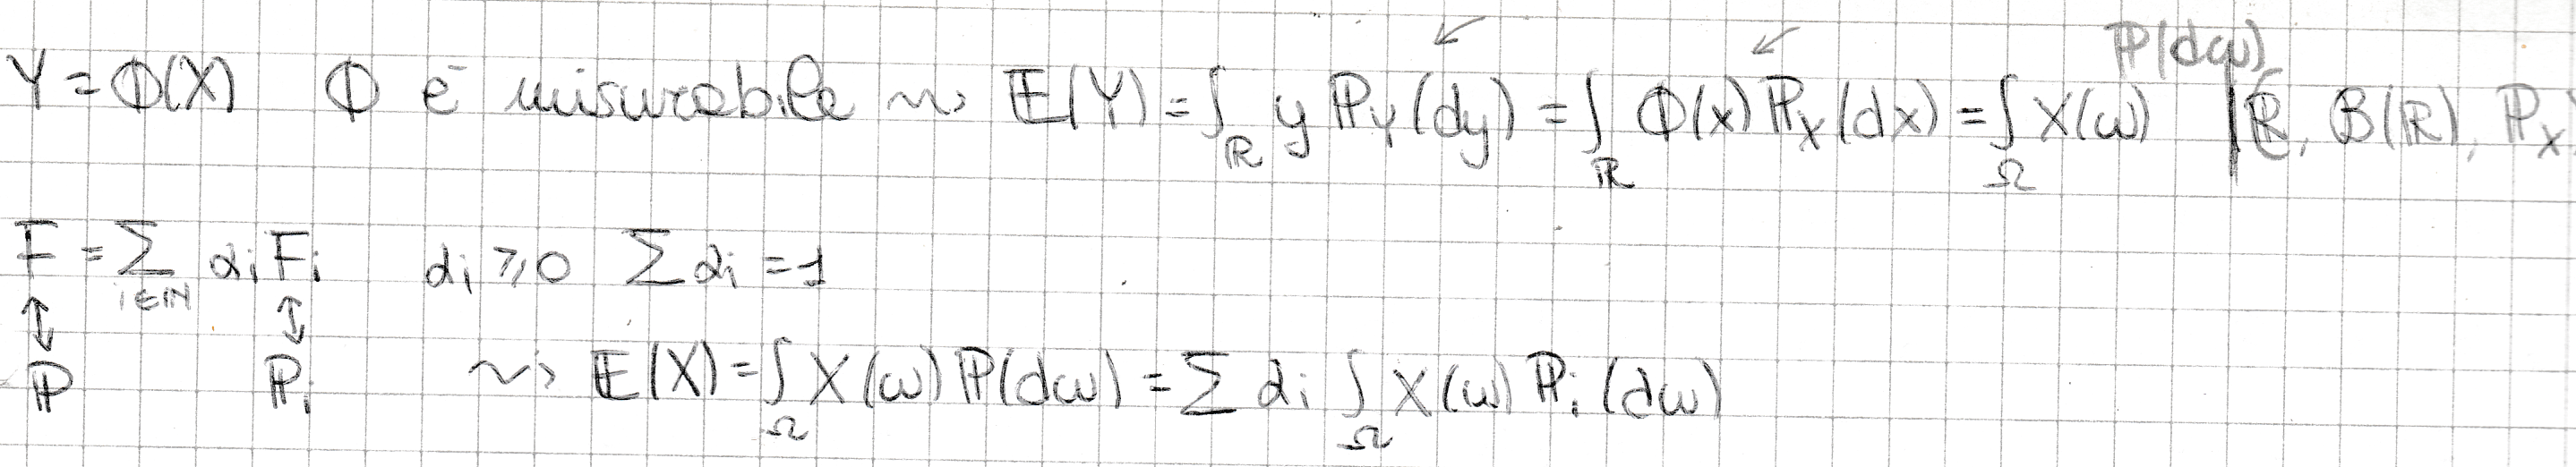 Y = Φ(X) Φ è misurabile ⇝ 𝔼(Y) = ∫_ℝ y ℙ_Y(dy) = ∫_ℝ Φ(x) ℙ_X(dx) = ∫_Ω X(ω) ℙ(dω) | (ℝ, B(ℝ), ℙ_X
F = Σ_{i∈ℕ} α_i F_i α_i ≥ 0 Σ α_i = 1
↕ ↕
ℙ ℙ_i ⇝ 𝔼(X) = ∫_Ω X(ω) ℙ(dω) = Σ α_i ∫_Ω X(ω) ℙ_i(dω)